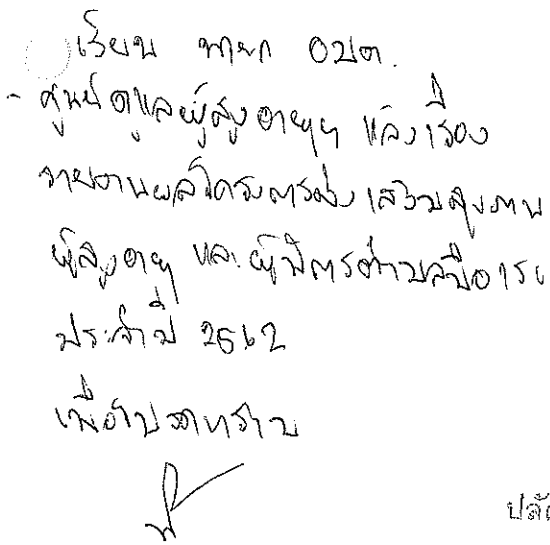 เรียน นายก อบต.
- ศูนย์ดูแลผู้สูงอายุฯ แจ้งเรื่อง
รายงานผลโครงการส่งเสริมสุขภาพ
ผู้สูงอายุ และผู้พิการตำบล
ประจำปี 2562
เพื่อโปรดทราบ
ปลั